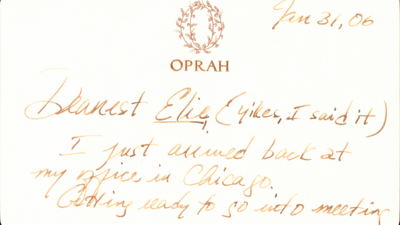 Jan 31, 06
OPRAH
Dearest Elie, (yikes, I said it)
I just arrived back at
my office in Chicago.
Getting ready to go into meeting